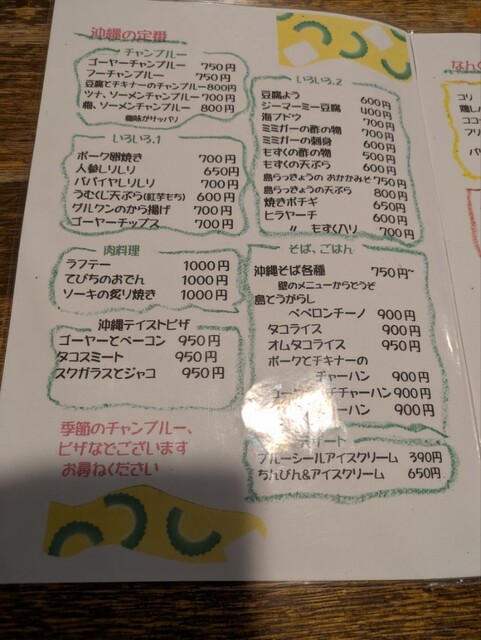 沖縄の定番
チャンプルー
ゴーヤーチャンプルー 750円
フーチャンプルー 750円
豆腐とチキナーのチャンプルー 800円
ツナ、ソーメンチャンプルー 700円
梅、ソーメンチャンプルー 800円
梅味がサッパリ
いろいろ.1
ポーク卵焼き 700円
人参しりしり 650円
パパイヤしりしり 700円
うむくじ天ぷら(紅芋もち) 600円
グルクンのから揚げ 700円
ゴーヤーチップス 700円
肉料理
ラフテー 1000円
てびちのおでん 1000円
ソーキの炙り焼き 1000円
沖縄テイストピザ
ゴーヤーとベーコン 950円
タコスミート 950円
スクガラスとジャコ 950円
季節のチャンプルー、
ピザなどございます
お尋ねください
いろいろ.2
豆腐よう 600円
ジーマーミー豆腐 400円
海ブドウ 700円
ミミガーの酢の物 700円
ミミガーの刺身 600円
もずくの酢の物 500円
もずくの天ぷら 600円
島らっきょうの おかかみそ 750円
島らっきょうの天ぷら 800円
焼きポチギ 650円
ヒラヤーチ 600円
〃 もずく入り 700円
そば、ごはん
沖縄そば各種 750円~
壁のメニューからどうぞ
島とうがらし
ペペロンチーノ 900円
タコライス 900円
オムタコライス 950円
ポークとチキナーの
チャーハン 900円
チャーハン 900円
ーハン 900円
デザート
ブルーシールアイスクリーム 390円
ちんびん&アイスクリーム 650円
なん
ゴリ
鶏し
ココ
フリ